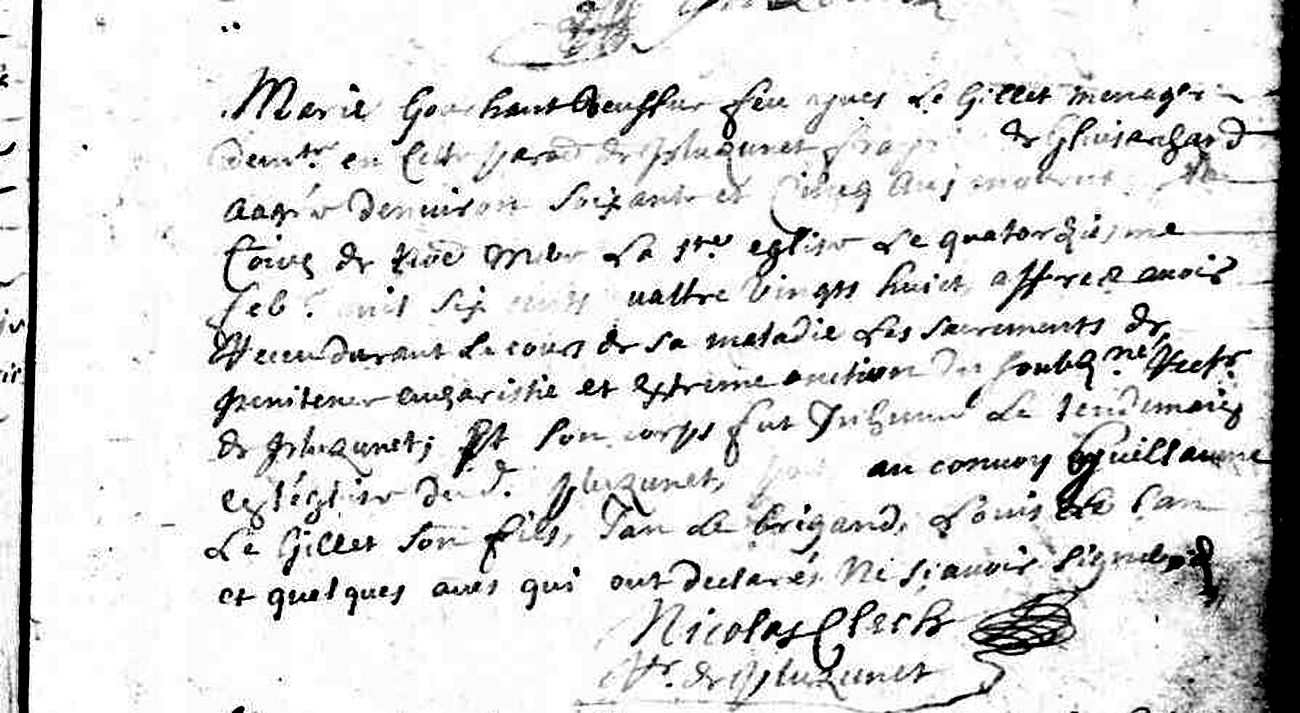 Marie Gouzhant veufsve feu yves Le Gillet menager
demtr. en cette paroe de Pluzunet de Guisachard
aagée denviron soixante et cincq ans mourut
de nre mere La ste. eglise Le quatorziesme
feb. mil six cents quattre vingts huict, apprez avoir
Receu durant Le cours de sa maladie Les sacrements de
penitence eucaristie et extreme onction du soubzne. Rectr.
de Pluzunet; Et son corps fut Inhumé Le lendemain
en l'église dud. Pluzunet, au convoy Guillaume
Le Gillet son fils, Jan Le brigand, Louis
et quelques aues qui ont declarés Ne sçavoir signer
Nicolas Clech
Rr. de Pluzunet